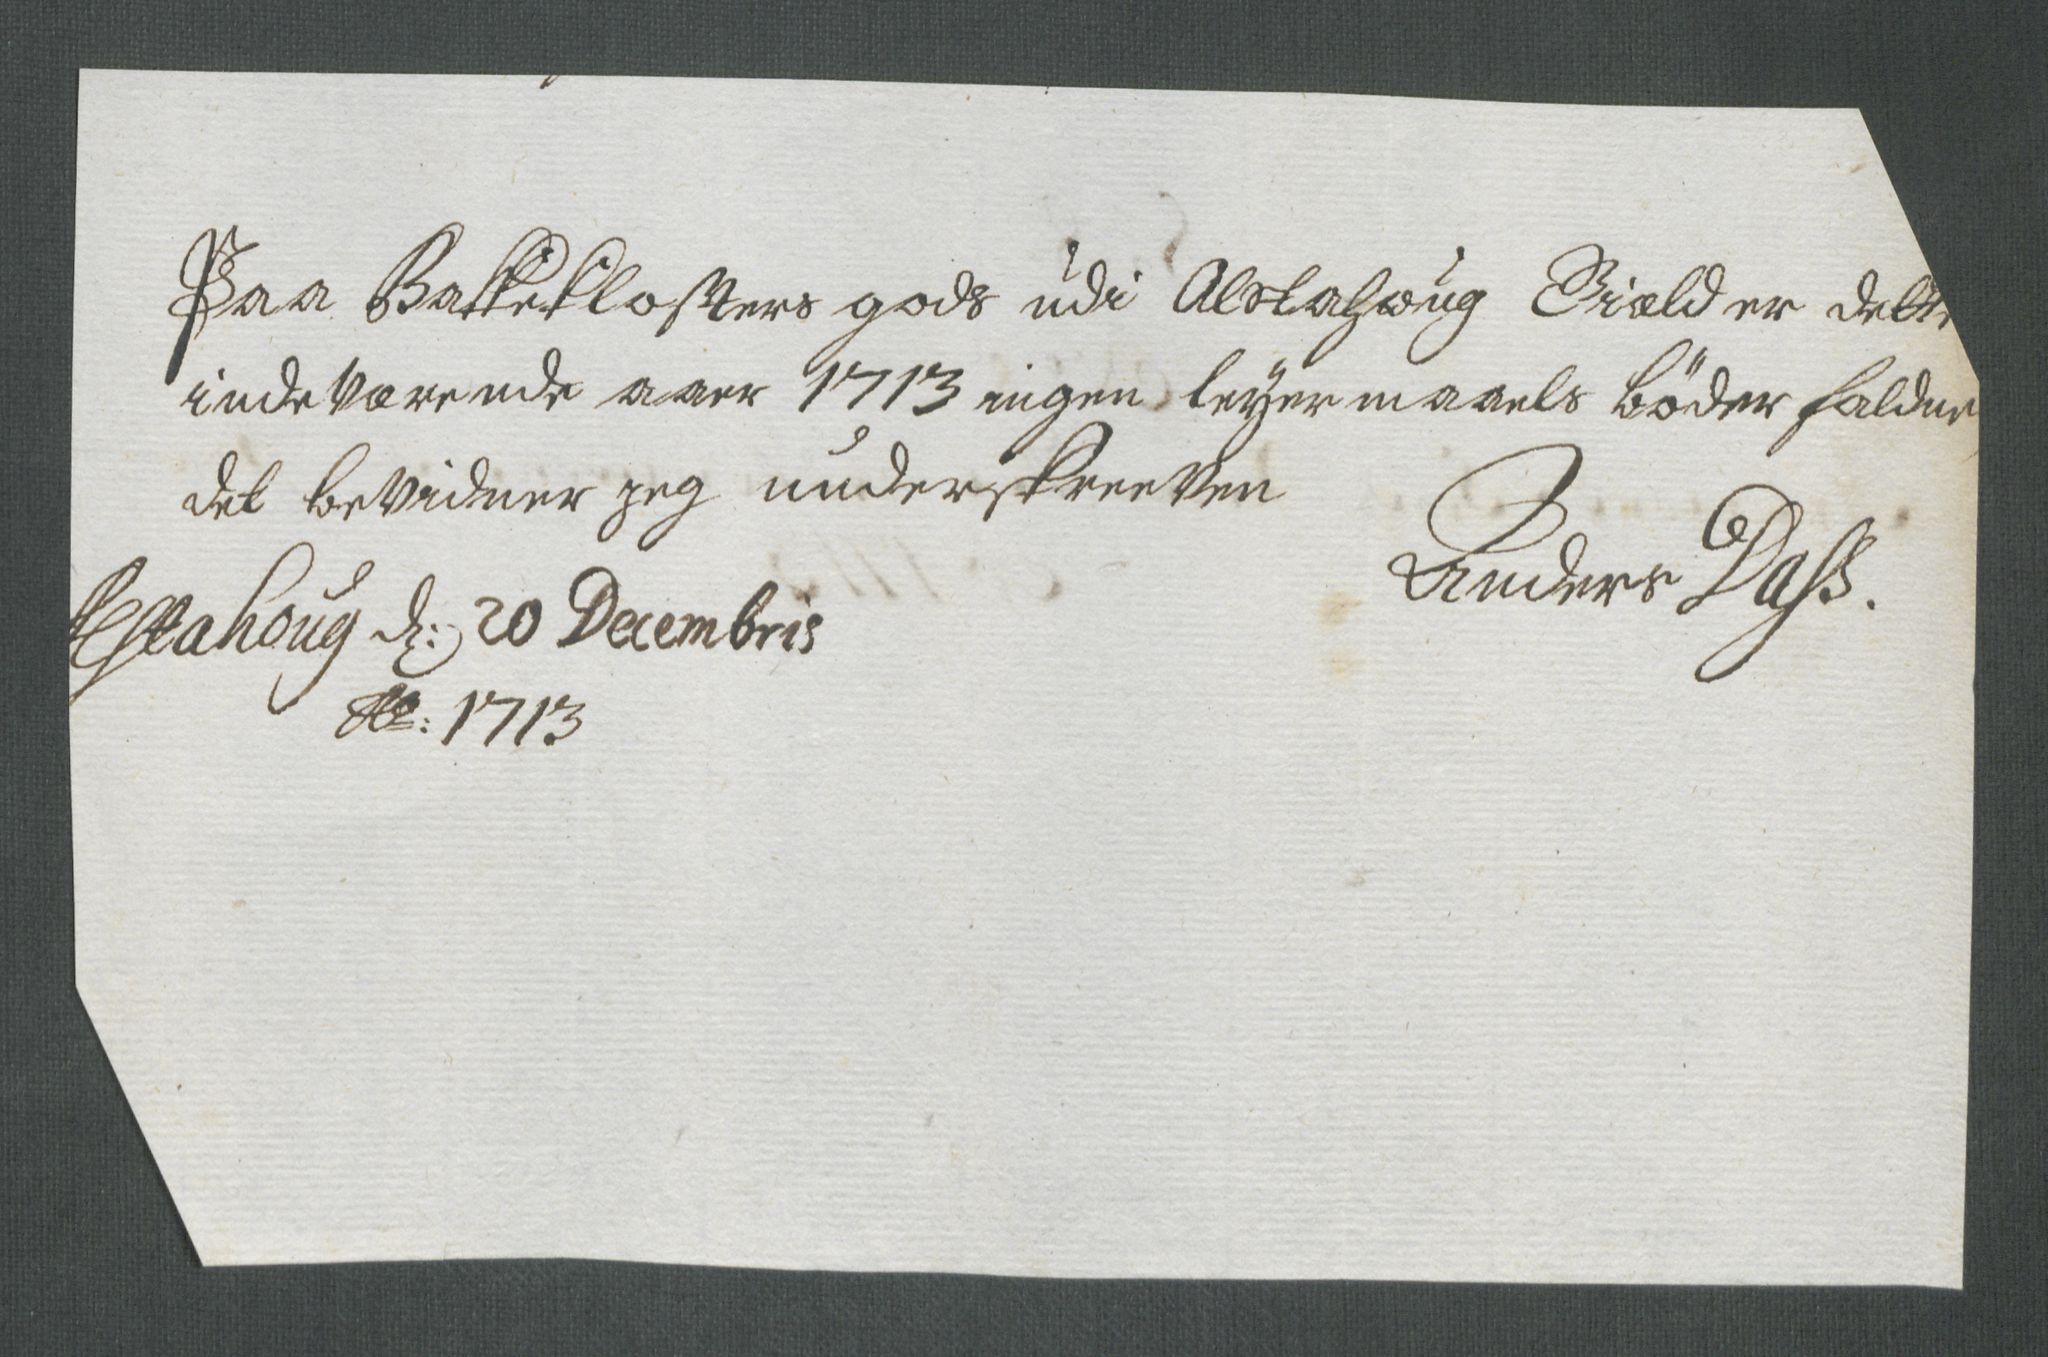 Paa Bakkeklosters gods udi Alstahoug Giæld er dette
indeværende aaer 1713 ingen leÿermaaels böder faldne
det bevidner jeg underskreeven
Anders Dass.
Alstahoug d: 20 Decembris
Ao: 1713